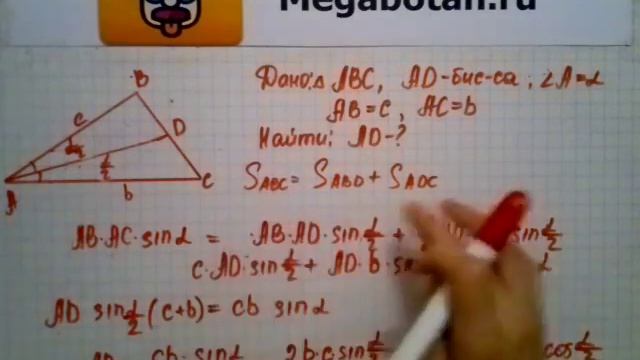 Megabotan.ru
Дано: Δ ABC, AD-бис-са, ∠A=α
AB=c, AC=b
Найти: AD-?
B
c
D
α/2
α/2
A
b
C
S ABC = S ABD + S ADC
AB·AC·sinα = AB·AD·sin α/2 + sin α/2
c·AD·sin α/2 + AD·b·
AD sin α/2 (c+b) = cb sinα
cb·sinα 2b·c sin α/2 cos α/2